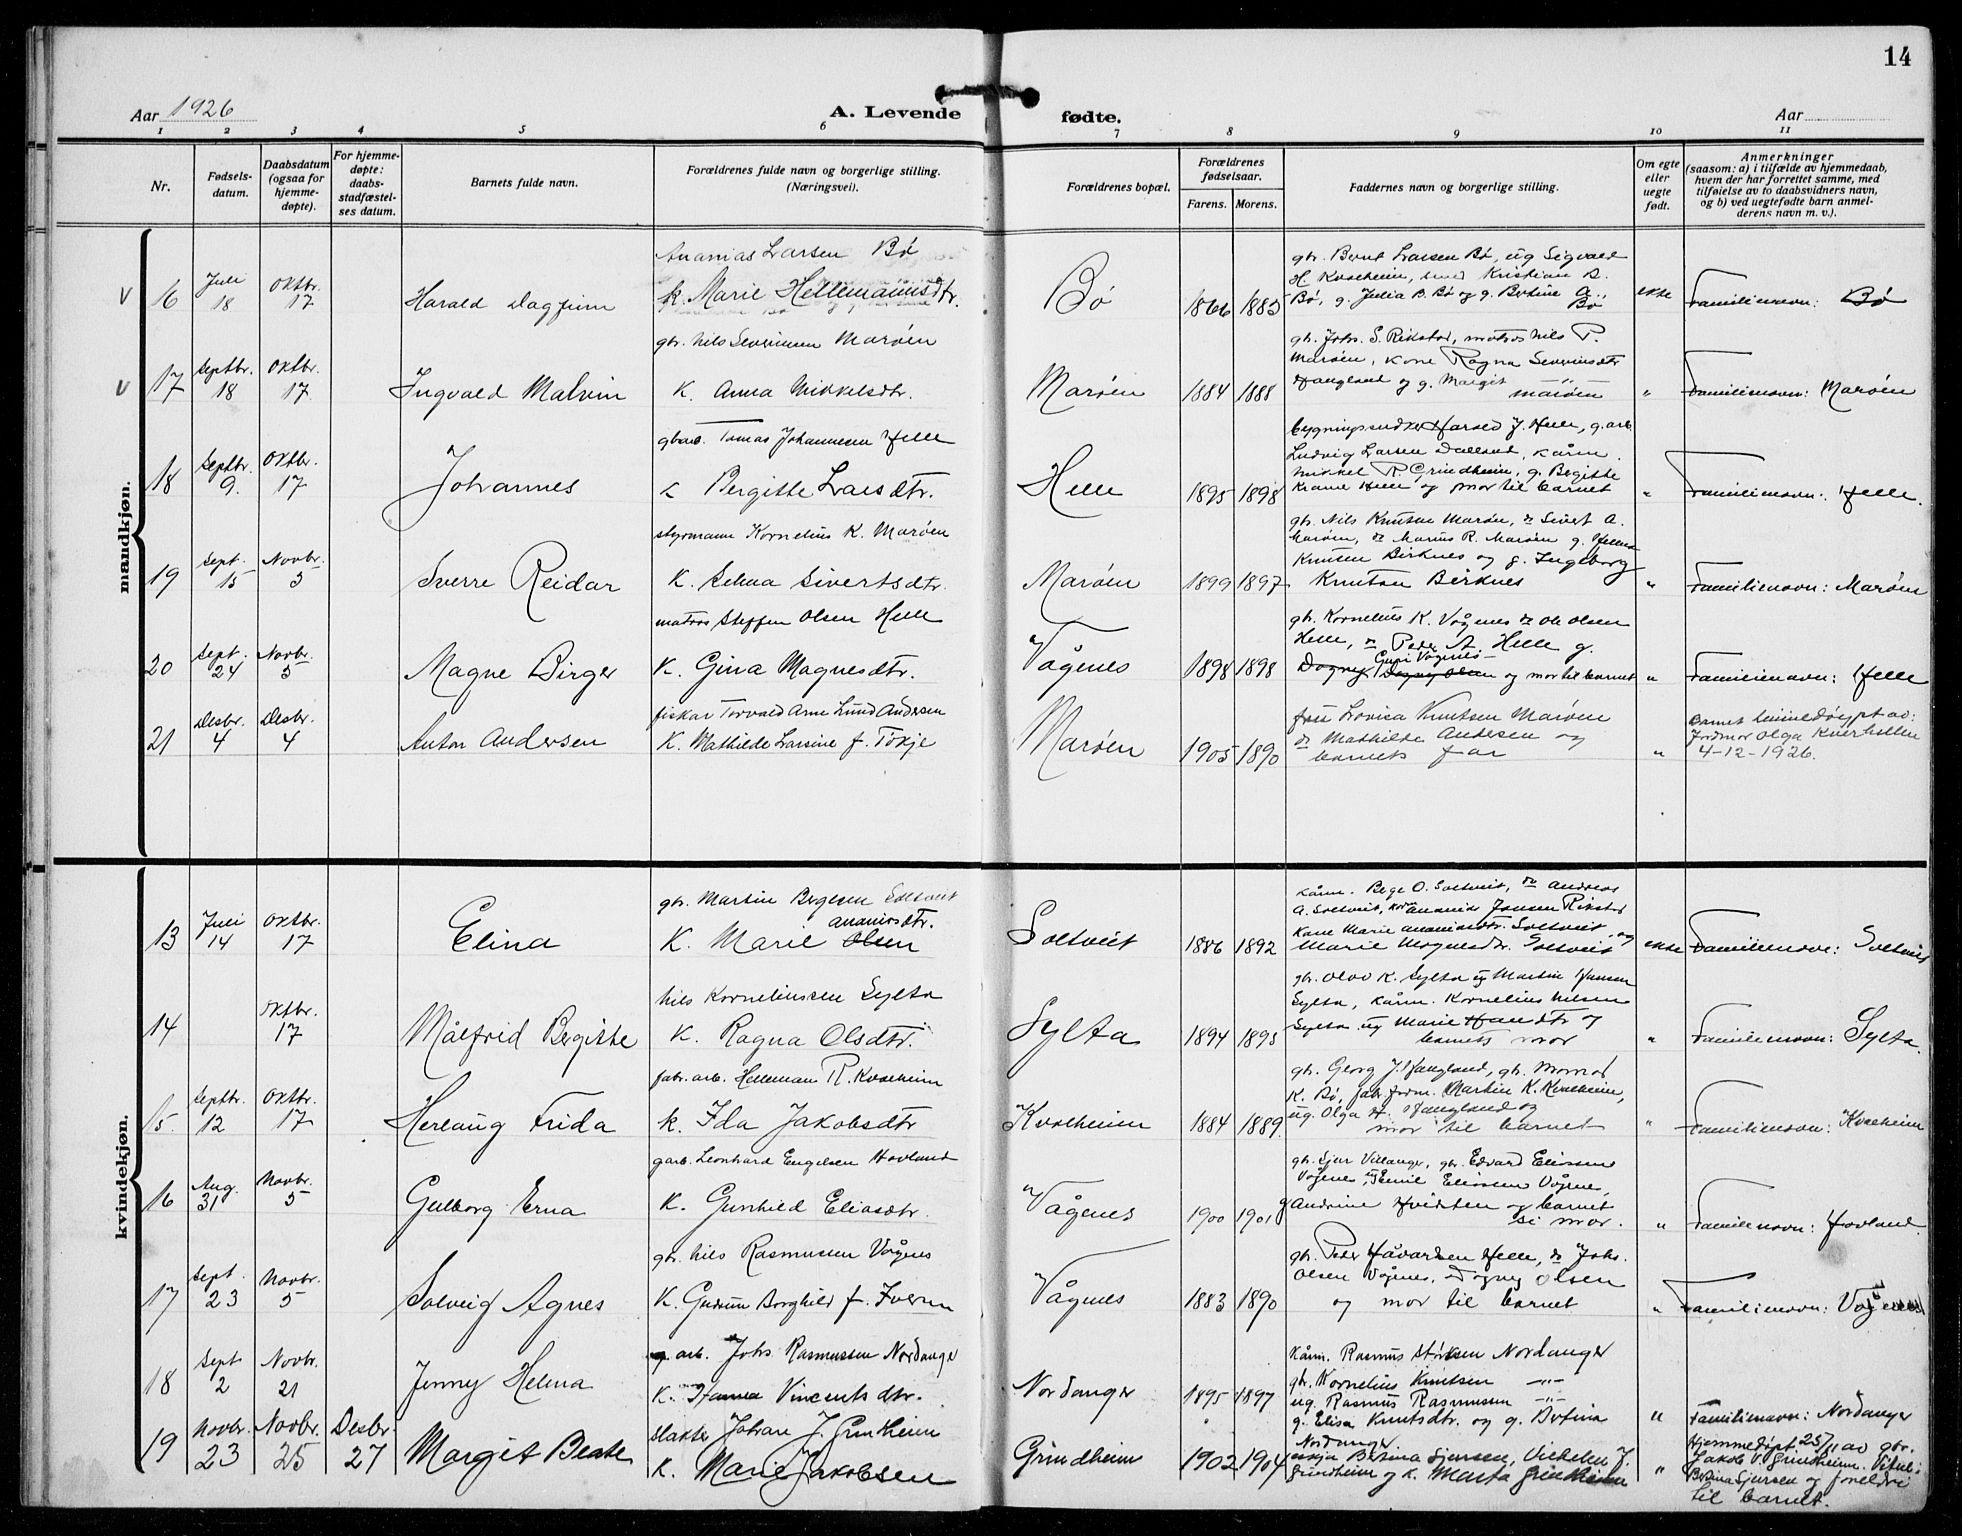 14
Aar 1926
A. Levende fødte.
Aar
1 2 3 4 5 6 7 8 9 10 11
Nr.
Fødsels-
datum.
Daabsdatum
(ogsaa for
hjemme-
døpte).
For hjemme-
døpte:
daabs-
stadfæstel-
ses datum.
Barnets fulde navn.
Forældrenes fulde navn og borgerlige stilling.
(Næringsvei).
Forældrenes bopæl.
Forældrenes
fødselsaar.
Farens. Morens.
Faddernes navn og borgerlige stilling.
Om egte
eller
uegte
født.
Anmerkninger
(saasom: a) i tilfælde av hjemmedaab,
hvem der har forrettet samme, med
tilføielse av to daabsvidners navn,
og b) ved uegtefødte barn anmel-
derens navn m. v.).
mandkjøn.
V 16
Juli
18
Oktbr.
17
Harald Dagfinn
Ananias Larsen Bø
k. Marie Hellemannsdtr.
Bø
1866 1883
gbr. Bernt Larsen Bø, ug Sigvald
H Kvalheim, Kristian B.
Bø, g. Julia B. Bø og g. Bertine A.
Bø
ekte
Familienavn: Bø
V 17
Septbr.
18
Oktbr.
17
Ingvald Malvin
gbr. Nils Severinsen Marøen
K. Anna Mikkelsdtr.
Marøen
1884 1888
gb. Johs. S. Rikstad, matros Nils P.
Marøen, kone Ragna Severinsdtr
Haugland og g. Margit
Marøen
"
Familienavn: Marøen
18
Septbr.
9.
Oktbr.
17
Johannes
gbarb. Tomas Johannesen Helle
k Bergitte Larsdtr.
Helle
1895 1898
Harald J. Helle, g. arb.
Ludvig Larsen Dalland, kårm.
Mikkel R Grindheim, g. Bergitte
Helle og mor til barnet
"
Familienavn: Helle.
19
Sept.
15
Novbr.
5
Sverre Reidar
styrmann Kornelius K. Marøen
K. Selma Sivertsdtr.
Marøen
1899 1897
gb. Nils Knutsen Marøen, Sivert A.
Marøen, Marius R. Marøen g.
Knutsen Birknes og g. Ingeborg
Knutsen Birknes
"
Familienavn: Marøen
20
Sept.
24
Novbr.
5
Magne Birger
matros Steffen Olsen Helle
K. Gina Magnesdtr.
Vågenes
1898 1898
gb. Kornelius K. Vågenes Ole Olsen
Helle, Peder A. Helle g.
Guri Vågenes
Dagny og mor til barnet
"
Familienavn: Helle
21
Desbr.
4
Desbr.
4
Anton Andersen
fiskar Torvald Arne Lund Andersen
K. Mathilde Larsine f. Tökje
Marøen
1905 1890
fru Lovica Knutsen Marøen
Mathilde Andersen og
barnets far
"
Barnet heimedøypt av:
Jordmor Olga Kverhellen
4-12-1926.
kvindekjøn.
13
Juli
14
Oktbr.
17
Elina
gbr. Martin Bergesen Soltveit
Ananiasdtr.
K. Marie Olsen
Soltveit
1886 1892
kårm. Berge O. Soltveit, Andreas
A. Soltveit, Ananias Jansen Rikstad
Kone Marie Ananiasdtr. Soltveit, og
Marie Mognesdtr. Soltveit
ekte
Familienavn: Soltveit
14
Oktbr.
17
Målfrid Bergitte
Nils Korneliussen Sylta
K. Ragna Olsdtr.
Sylta
1894 1895
gbr. Olav K. Sylta ug Martin Hansen
Sylta, kårm. Kornelius Nilsen
Sylta ug Marie og
barnets mor
"
Familienavn: Sylta.
15
Septbr.
12
Oktbr.
17
Herlaug Frida
fabr. arb. Helleman R. Kvalheim
k. Ida Jakobsdtr
Kvalheim
1884 1889.
gb. Georg J. Haugland, gb. Monrad
K. Bø, fabr. form. Martin K. Kvalheim,
ug. Olga A. Haugland og
mor til barnet
"
Familienavn: Kvalheim
16
Aug.
31
Novbr.
5
Gulborg Erna
garb. Leonhard Engelsen Hovland
K. Gunhild Eliasdtr.
Vågenes
1900 1901
gb. Sjur Villanger, gbr. Edvard Eliassen
Vågene, Emil Eliassen Vågene,
g Andrine Hvidsten og barnet
si mor.
"
Familienavn: Hovland.
17
Sept.
23
Novbr.
5
Solveig Agnes
gb. Nils Rasmussen Vågnes
K. Gudrun Borghild f. Iversen
Vågnes
1883 1890
gb. Peder Håvardsen Helle, Johs.
Olsen Vågnes, Dagny Olsen
og mor til barnet
"
Familienavn: Vågenes
18
Sept
2
Novbr.
21
Jenny Helena
g arb. Johs Rasmussen Nordanger
K. Hanna Vincentsdtr.
Nordanger
1895 1897
kårm. Rasmus Størksen Nordanger
gb. Kornelius Knutsen -"-
ug. Rasmus Rasmussen -"-
g. Elisa Knutsdtr. og g. Bertina
Nordanger
"
Familienavn: Nordanger
19
Novbr.
23
Novbr.
25
Desbr.
27
Margit Beate
slakter Johan J. Grindheim
K. Marie Jakobsen
Grindheim
1902 1904
Bertina Sjursen, Vilhelm J.
Grindheim og k. Marta Grindheim
"
Hjemmedøpt 25/11 av gbr.
Jakob V. Grindheim. Vitni:
Bertina Sjursen og foreldri
til barnet.